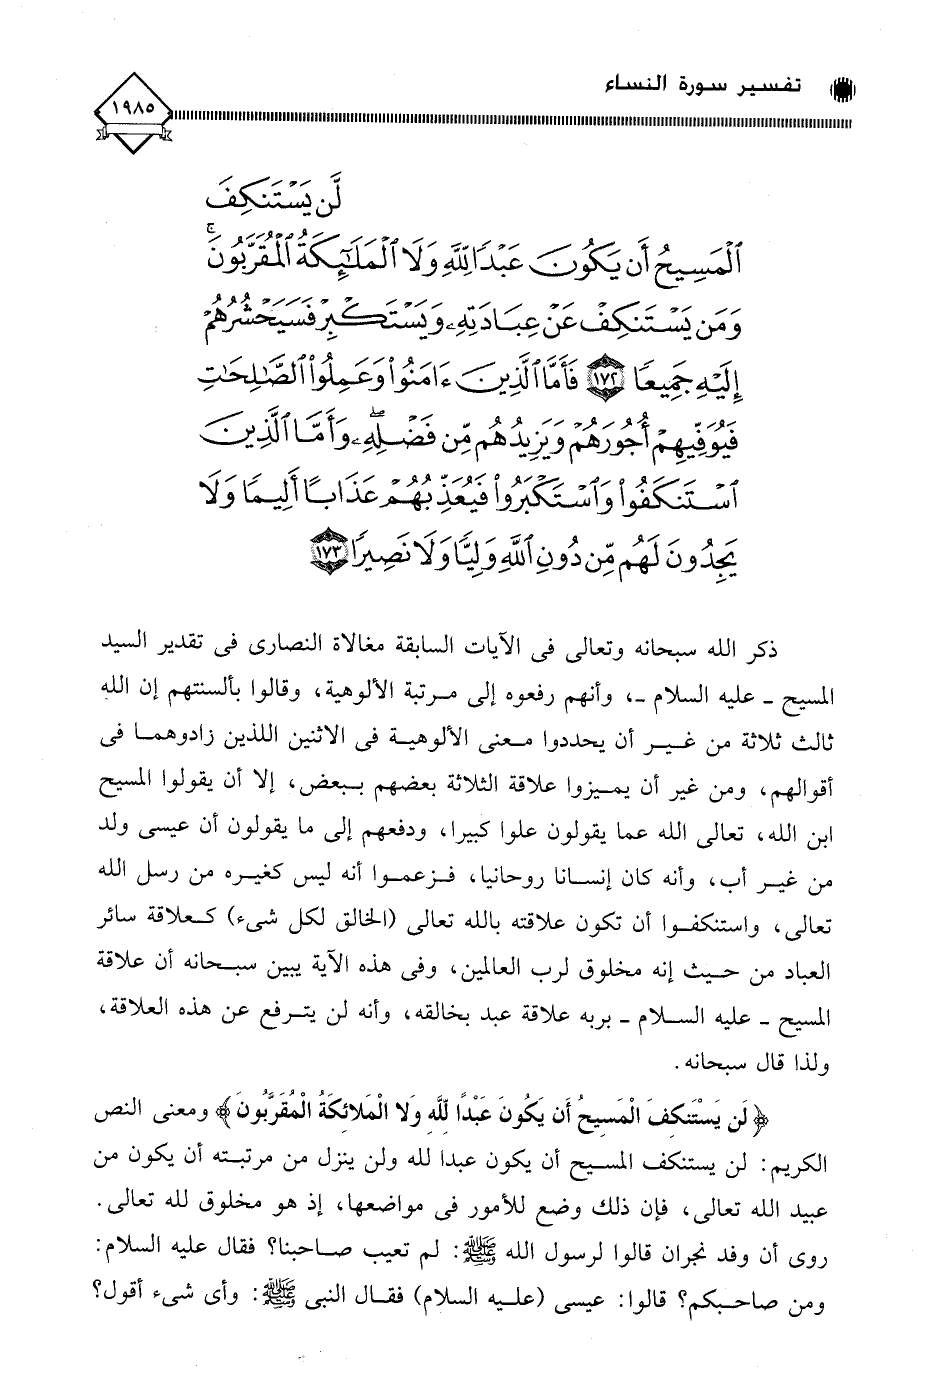 تفسير سورة النساء
١٩٨٥
لَّن يَسْتَنكِفَ
ٱلْمَسِيحُ أَن يَكُونَ عَبْدًا لِّلَّهِ وَلَا ٱلْمَلَٰٓئِكَةُ ٱلْمُقَرَّبُونَ ۚ
وَمَن يَسْتَنكِفْ عَنْ عِبَادَتِهِۦ وَيَسْتَكْبِرْ فَسَيَحْشُرُهُمْ
إِلَيْهِ جَمِيعًا ١٧٢ فَأَمَّا ٱلَّذِينَ ءَامَنُوا۟ وَعَمِلُوا۟ ٱلصَّٰلِحَٰتِ
فَيُوَفِّيهِمْ أُجُورَهُمْ وَيَزِيدُهُم مِّن فَضْلِهِۦ ۖ وَأَمَّا ٱلَّذِينَ
ٱسْتَنكَفُوا۟ وَٱسْتَكْبَرُوا۟ فَيُعَذِّبُهُمْ عَذَابًا أَلِيمًا وَلَا
يَجِدُونَ لَهُم مِّن دُونِ ٱللَّهِ وَلِيًّا وَلَا نَصِيرًا ١٧٣
ذكر الله سبحانه وتعالى فى الآيات السابقة مغالاة النصارى فى تقدير السيد
المسيح ـ عليه السلام ـ، وأنهم رفعوه إلى مرتبة الألوهية، وقالوا بألسنتهم إن الله
ثالث ثلاثة من غير أن يحددوا معنى الألوهية فى الاثنين اللذين زادوهما فى
أقوالهم، ومن غير أن يميزوا علاقة الثلاثة بعضهم ببعض، إلا أن يقولوا المسيح
ابن الله، تعالى الله عما يقولون علوا كبيرا، ودفعهم إلى ما يقولون أن عيسى ولد
من غير أب، وأنه كان إنسانا روحانيا، فزعموا أنه ليس كغيره من رسل الله
تعالى، واستنكفوا أن تكون علاقته بالله تعالى (الخالق لكل شىء) كعلاقة سائر
العباد من حيث إنه مخلوق لرب العالمين، وفى هذه الآية يبين سبحانه أن علاقة
المسيح ـ عليه السلام ـ بربه علاقة عبد بخالقه، وأنه لن يترفع عن هذه العلاقة،
ولذا قال سبحانه.
﴿لَن يَسْتَنكِفَ الْمَسِيحُ أَن يَكُونَ عَبْدًا لِّلَّهِ وَلا الْمَلائِكَةُ الْمُقَرَّبُونَ﴾ ومعنى النص
الكريم: لن يستنكف المسيح أن يكون عبدا لله ولن ينزل من مرتبته أن يكون من
عبيد الله تعالى، فإن ذلك وضع للأمور فى مواضعها، إذ هو مخلوق لله تعالى.
روى أن وفد نجران قالوا لرسول الله ﷺ: لم تعيب صاحبنا؟ فقال عليه السلام:
ومن صاحبكم؟ قالوا: عيسى (عليه السلام) فقال النبى ﷺ: وأى شىء أقول؟